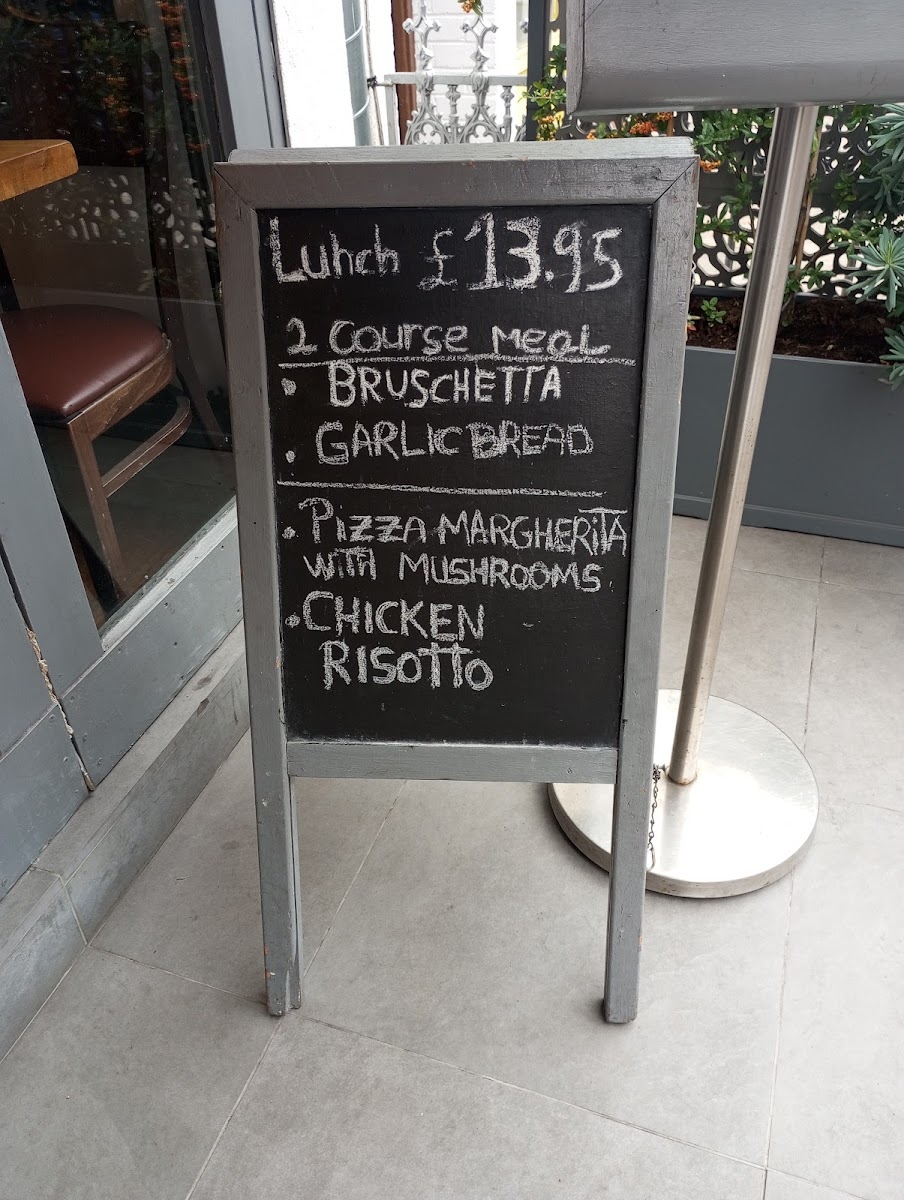 Lunch £13.95
2 Course Meal
• BRUSCHETTA
• GARLIC BREAD
• PIZZA MARGHERITA
WITH MUSHROOMS
• CHICKEN
RISOTTO